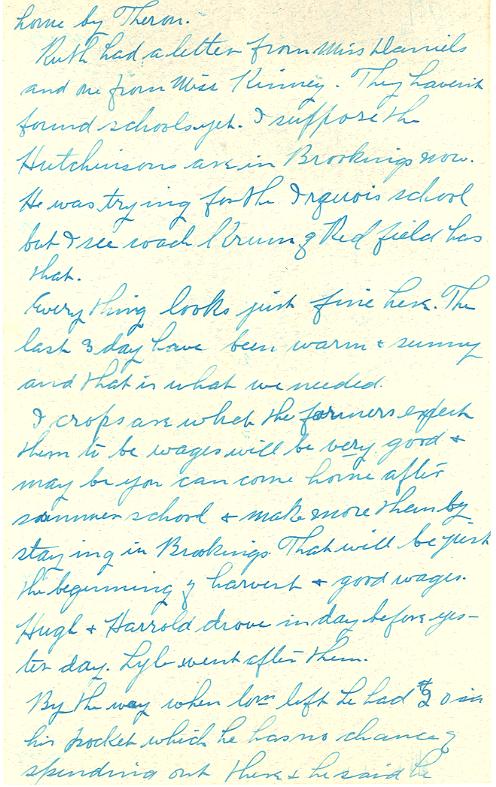 home by Theron.
Ruth had a letter from Miss Daniels
and one from Miss Kinney. They havent
found schools yet. I suppose the
Hutchinsons are in Brookings now.
He was trying for the Irquois school
but I see coach of Redfield has
that.
Every thing looks just fine here. The
last 3 day have been warm & sunny
and that is what we needed.
I crops are what the farmers expect
them to be wages will be very good &
may be you can come home after
summer school & make more than by
staying in Brookings. That will be just
the beginning of harvest & good wages.
Hugh & Harrold drove in day before yes-
ter day. Lyle went after them.
By the way when left he had $20 in
his pocket which he has no chance of
spending out there & he said he